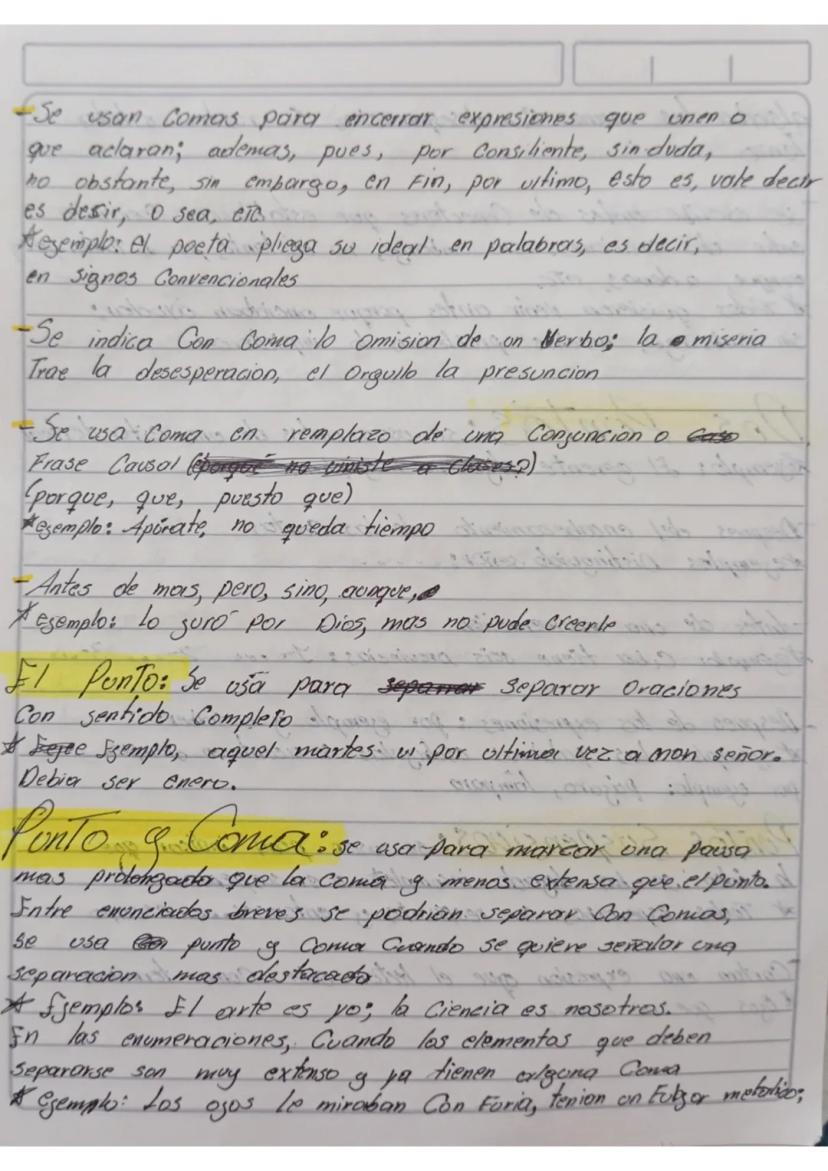 - Se usan Comas para encerrar expresiones que unen o
que aclaran; ademas, pues, por Consiliente, sin duda,
no obstante, sin embargo, en Fin, por ultimo, esto es, vale decir
es desir, o sea, etc
* egemplo: el poeta pliega su ideal en palabras, es decir,
en signos Convencionales
- Se indica Con Coma lo omision de un Verbo; la miseria
Trae la desesperacion, el Orgullo la presuncion
- Se usa Coma en remplazo de una Conjunción o
Frase Causal
(porque, que, puesto que)
* egemplo: Apúrate, no queda tiempo
- Antes de mas, pero, sino, aunque,
* egemplo: Lo juró por Dios, mas no pude creerle
El Punto: Se usa para separar Oraciones
Con sentido Completo
* Egemplo, aquel martes vi por ultima vez a mon señor.
Debia ser enero.
Punto y Coma: se usa para marcar una pausa
mas prolongada que la coma y menos extensa que el punto.
Entre enunciados breves se podrian separar Con Comas,
se usa punto y Coma Cuando se quiere señalar una
separacion mas destacada
* Ejemplo: El arte es yo; la Ciencia es nosotros.
En las enumeraciones, Cuando los elementos que deben
separarse son muy extenso y ya tienen alguna Coma
* egemplo: Los ojos le miraban Con Furia, tenian un Fulgor metalico;